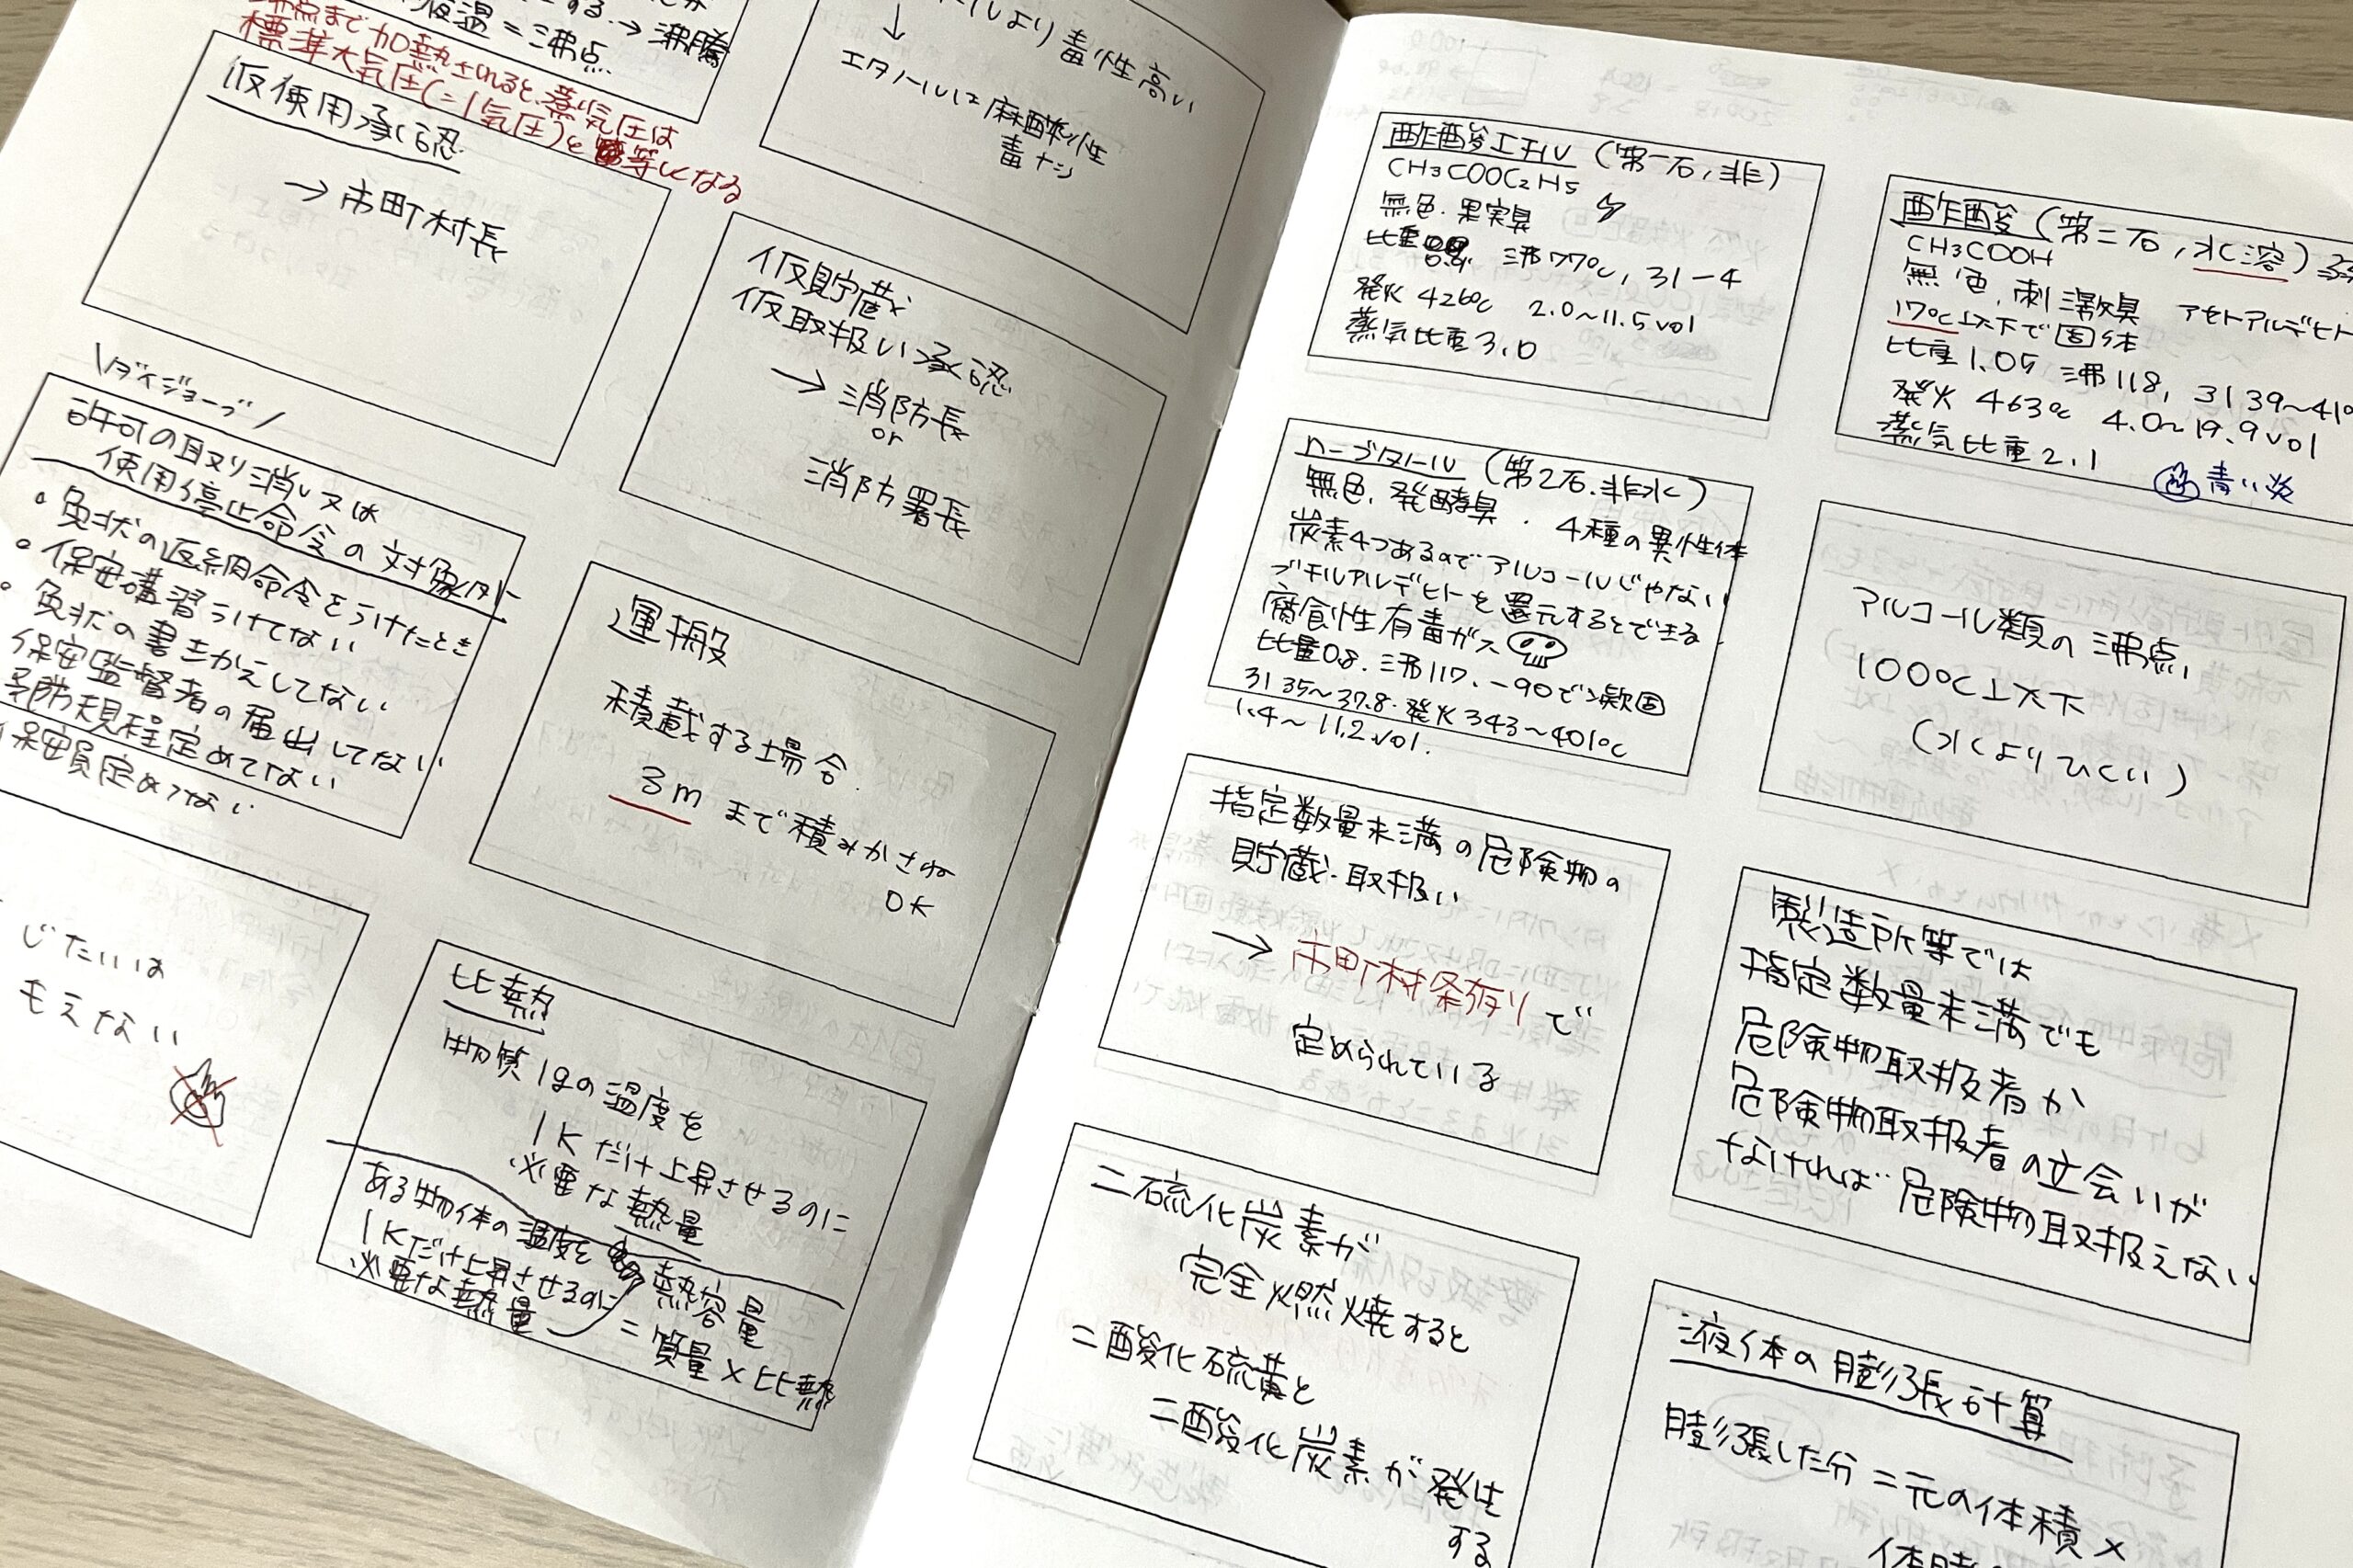 する→沸騰
液温=沸点
沸点まで加熱されると、蒸気圧は
標準大気圧(=1気圧)と等しくなる
仮使用承認
→市町村長
\ダイジョーブ/
許可の取り消し又は
使用停止命令の対象
・免状の返納命令をうけたとき
・保安講習うけてない
・免状の書きかえしてない
保安監督者の届出してない
予防規程定めてない
保安員定めてない
じたいは
もえない
より毒性高い
↓
エタノールは麻酔性
毒ナシ
仮貯蔵
仮取扱い承認
→消防長
or
消防署長
運搬
積載する場合
3mまで積みかさね
OK
比熱
物質1gの温度を
1Kだけ上昇させるのに
必要な熱量
ある物体の温度を
1Kだけ上昇させるのに
必要な熱量
熱容量
=質量×比熱
酢酸エチル(第一石,非)
CH3COOC2H5
無色.果実臭
比重0.9 沸77℃,引-4
発火426℃ 2.0~11.5vol
蒸気比重3.0
酢酸(第二石,水溶)
CH3COOH
無色,刺激臭 アセトアルデヒト
17℃以下で固体
比重1.05 沸118,引39~41℃
発火463℃ 4.0~19.9vol
蒸気比重2.1
青い炎
n-ブタノール(第2石.非水)
無色.発酵臭.4種の異性体
炭素4つあるのでアルコールじゃない
ブチルアルデヒトを還元するとできる
腐食性有毒ガス
比重0.8.沸117.-90で凝固
引35~37.8.発火343~401℃
1.4~11.2vol.
アルコール類の沸点,
100℃以下
(水よりひくい)
指定数量未満の危険物の
貯蔵・取扱い
→市町村条例で
定められている
製造所等では
指定数量未満でも
危険物取扱者か
危険物取扱者の立会いが
なければ危険物取扱えない
二硫化炭素が
完全燃焼すると
二酸化硫黄と
二酸化炭素が発生
する
液体の膨張計算
膨張した分=元の体積×